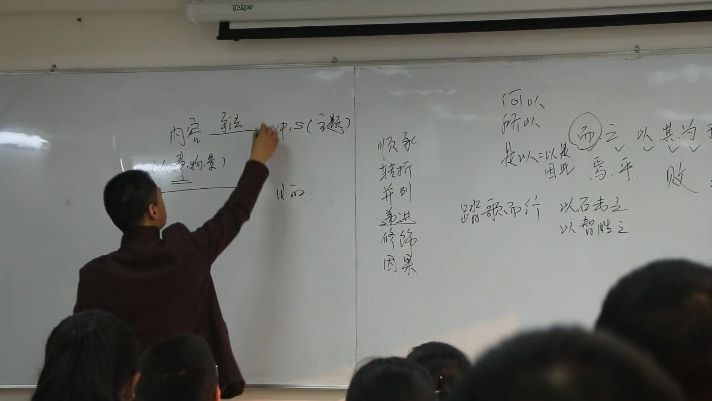 内容 手法 中心(主题)
(人事物景)
顺承
转折
并列
递进
修饰
因果
何以
所以
是以=以是
因此
而 之 以 其 为
焉 乎
败
踏歌而行
以石击之
以智胜之